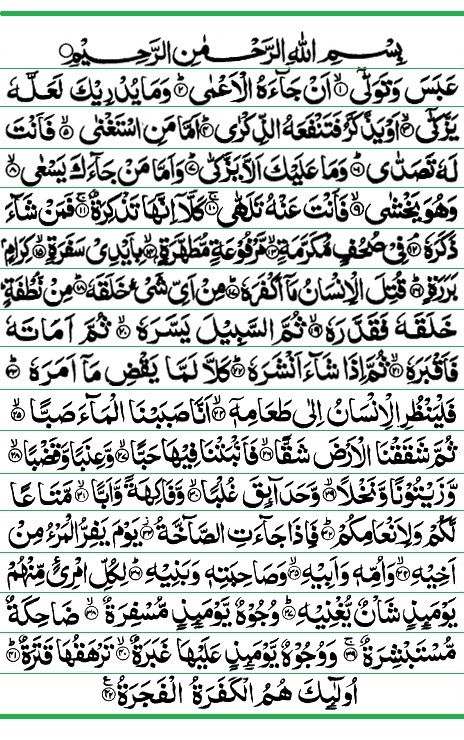 بِسْمِ اللهِ الرَّحْمٰنِ الرَّحِيْمِ
عَبَسَ وَتَوَلّٰىۤ ۙ﴿۱﴾ اَنْ جَآءَهُ الْاَعْمٰى ؕ﴿۲﴾ وَمَا يُدْرِيْكَ لَعَلَّهٗ
يَزَّكّٰىۤ ۙ﴿۳﴾ اَوْ يَذَّكَّرُ فَتَنْفَعَهُ الذِّكْرٰى ؕ﴿۴﴾ اَمَّا مَنِ اسْتَغْنٰى ۙ﴿۵﴾ فَاَنْتَ
لَهٗ تَصَدّٰى ؕ﴿۶﴾ وَمَا عَلَيْكَ اَلَّا يَزَّكّٰى ؕ﴿۷﴾ وَاَمَّا مَنْ جَآءَكَ يَسْعٰى ۙ﴿۸﴾
وَهُوَ يَخْشٰى ۙ﴿۹﴾ فَاَنْتَ عَنْهُ تَلَهّٰى ۚ﴿۱۰﴾ كَلَّاۤ اِنَّهَا تَذْكِرَةٌ ۚ﴿۱۱﴾ فَمَنْ شَآءَ
ذَكَرَهٗ ۘ﴿۱۲﴾ فِيْ صُحُفٍ مُّكَرَّمَةٍ ۙ﴿۱۳﴾ مَّرْفُوْعَةٍ مُّطَهَّرَةٍ ۙ﴿۱۴﴾ بِاَيْدِيْ سَفَرَةٍ ۙ﴿۱۵﴾ كِرَامٍۭ
بَرَرَةٍ ؕ﴿۱۶﴾ قُتِلَ الْاِنْسَانُ مَاۤ اَكْفَرَهٗ ؕ﴿۱۷﴾ مِنْ اَيِّ شَيْءٍ خَلَقَهٗ ؕ﴿۱۸﴾ مِنْ نُّطْفَةٍ ؕ
خَلَقَهٗ فَقَدَّرَهٗ ۙ﴿۱۹﴾ ثُمَّ السَّبِيْلَ يَسَّرَهٗ ۙ﴿۲۰﴾ ثُمَّ اَمَاتَهٗ
فَاَقْبَرَهٗ ۙ﴿۲۱﴾ ثُمَّ اِذَا شَآءَ اَنْشَرَهٗ ؕ﴿۲۲﴾ كَلَّا لَمَّا يَقْضِ مَاۤ اَمَرَهٗ ؕ﴿۲۳﴾
فَلْيَنْظُرِ الْاِنْسَانُ اِلٰى طَعَامِهٖۤ ۙ﴿۲۴﴾ اَنَّا صَبَبْنَا الْمَآءَ صَبًّا ۙ﴿۲۵﴾
ثُمَّ شَقَقْنَا الْاَرْضَ شَقًّا ۙ﴿۲۶﴾ فَاَنْۢبَتْنَا فِيْهَا حَبًّا ۙ﴿۲۷﴾ وَّعِنَبًا وَّقَضْبًا ۙ﴿۲۸﴾
وَّزَيْتُوْنًا وَّنَخْلًا ۙ﴿۲۹﴾ وَّحَدَآئِقَ غُلْبًا ۙ﴿۳۰﴾ وَّفَاكِهَةً وَّاَبًّا ۙ﴿۳۱﴾ مَّتَاعًا
لَّكُمْ وَلِاَنْعَامِكُمْ ؕ﴿۳۲﴾ فَاِذَا جَآءَتِ الصَّآخَّةُ ۫﴿۳۳﴾ يَوْمَ يَفِرُّ الْمَرْءُ مِنْ
اَخِيْهِ ۙ﴿۳۴﴾ وَاُمِّهٖ وَاَبِيْهِ ۙ﴿۳۵﴾ وَصَاحِبَتِهٖ وَبَنِيْهِ ؕ﴿۳۶﴾ لِكُلِّ امْرِئٍ مِّنْهُمْ
يَوْمَئِذٍ شَاْنٌ يُّغْنِيْهِ ؕ﴿۳۷﴾ وُجُوْهٌ يَّوْمَئِذٍ مُّسْفِرَةٌ ۙ﴿۳۸﴾ ضَاحِكَةٌ
مُّسْتَبْشِرَةٌ ۚ﴿۳۹﴾ وَوُجُوْهٌ يَّوْمَئِذٍ عَلَيْهَا غَبَرَةٌ ۙ﴿۴۰﴾ تَرْهَقُهَا قَتَرَةٌ ؕ﴿۴۱﴾
اُولٰٓئِكَ هُمُ الْكَفَرَةُ الْفَجَرَةُ ﴿۴۲﴾